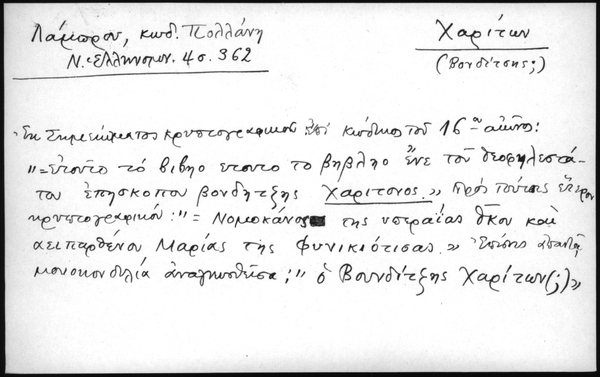 Λάμπρου, κωδ. Πολλάνη
Ν. Ελληνομν. 4 σ. 362
Χαρίτων
(Βονδίτσης;)
Ἐκ Σημειώματος κρυπτογραφικοῦ ἐπὶ κώδικος τοῦ 16ου αἰῶνος:
"=ἐτοντο τό βιβηο ετοντο το βηβληο ἔνε τοῦ θεοφηλεστά-
του ἐπησκοπου βονδητζης Χαριτονος." Πρὸ τούτου ἕτερον
κρυπτογραφικόν: "= Νομοκάνος της υπεραίας θκου καὶ
αειπαρθένου Μαρίας τῆς Φυνικιότισας." Ἐπίσης
μονοκονδυλιά ἀναγνωσθεῖσα: "ὁ Βουνδίτζης Χαρίτων(;)"